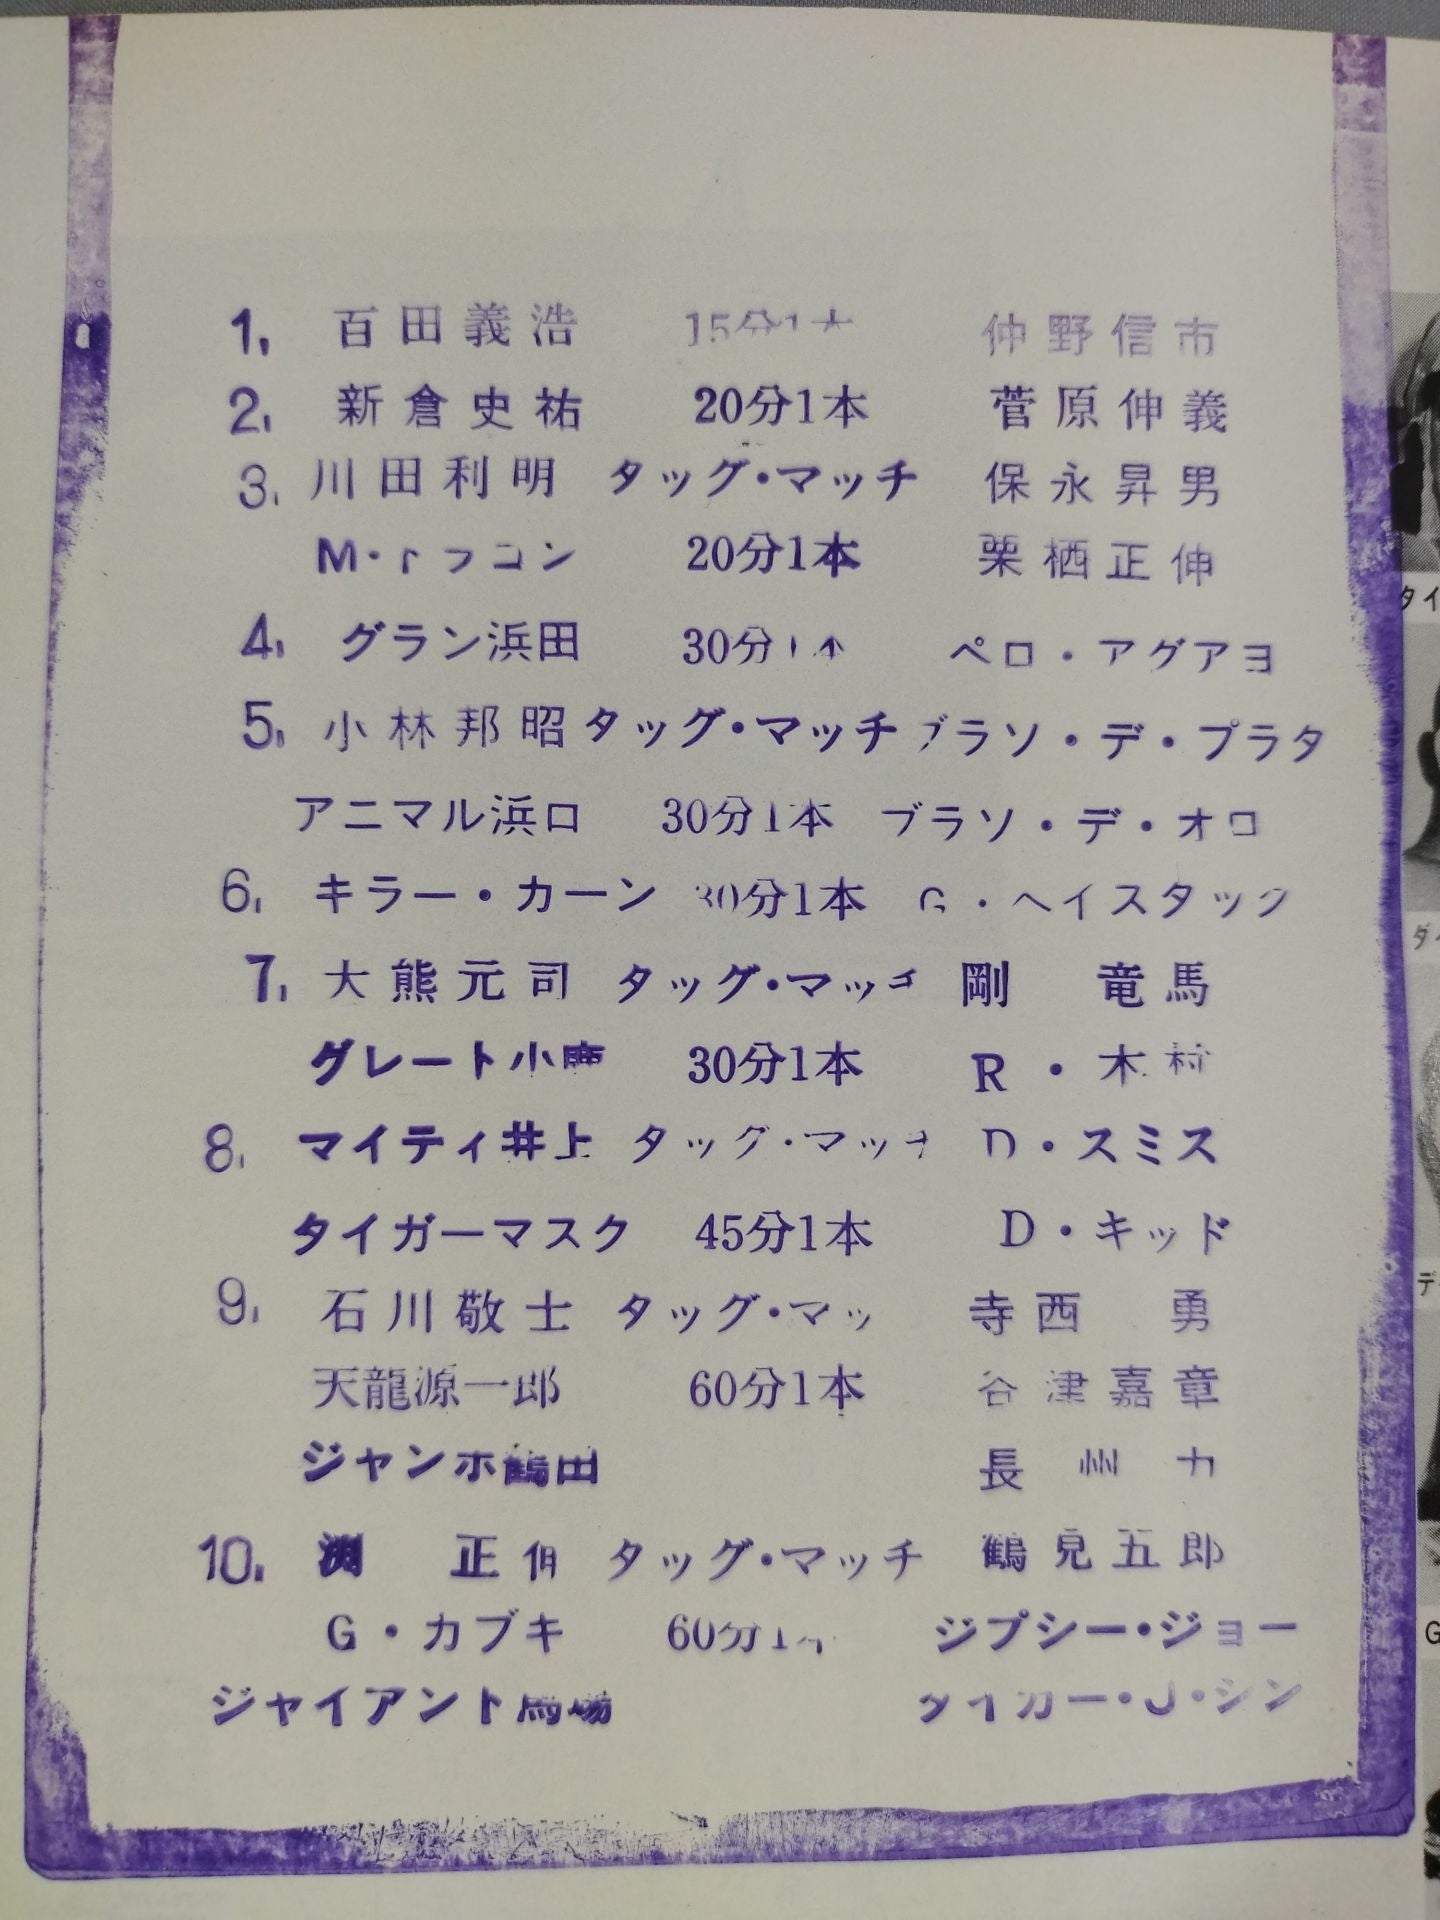 1. 百田義浩 15分1本 仲野信市
2. 新倉史祐 20分1本 菅原伸義
3. 川田利明 タッグ・マッチ 保永昇男
M・ファルコン 20分1本 栗栖正伸
4. グラン浜田 30分1本 ペロ・アグアヨ
5. 小林邦昭 タッグ・マッチ ブラソ・デ・プラタ
アニマル浜口 30分1本 ブラソ・デ・オロ
6. キラー・カーン 30分1本 G・ヘイスタック
7. 大熊元司 タッグ・マッチ 剛竜馬
グレート小鹿 30分1本 R・木村
8. マイティ井上 タッグ・マッチ D・スミス
タイガーマスク 45分1本 D・キッド
9. 石川敬士 タッグ・マッ 寺西勇
天龍源一郎 60分1本 谷津嘉章
ジャンボ鶴田 長州力
10. 渕正伸 タッグ・マッチ 鶴見五郎
G・カブキ 60分1本 ジプシー・ジョー
ジャイアント馬場 タイガー・J・シン